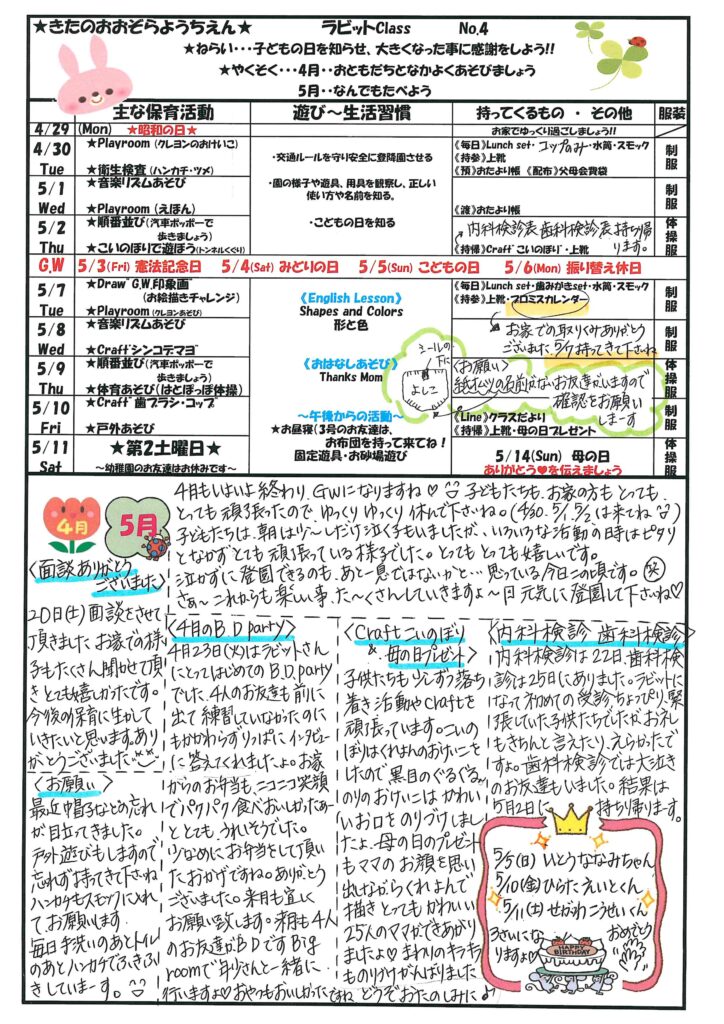 ★きたのおおぞらようちえん★　ラビットClass　No.4
★ねらい・・・子どもの日を知らせ、大きくなった事に感謝をしよう!!
★やくそく・・・4月・・おともだちとなかよくあそびましょう
5月・・なんでもたべよう
主な保育活動　遊び～生活習慣　持ってくるもの ・ その他　服装
4/29 (Mon) ★昭和の日★　お家でゆっくり過ごしましょう!!
4/30 Tue
★Playroom (クレヨンのおけいこ)
★衛生検査 (ハンカチ・ツメ)
・交通ルールを守り安全に登降園させる
《毎日》Lunch set・コップのみ・水筒・スモック
《持参》上靴
《預》おたより帳 《配布》父母会費袋
制服
5/1 Wed
★音楽リズムあそび
★Playroom (えほん)
・園の様子や遊具、用具を観察し、正しい
使い方や名前を知る。
《渡》おたより帳
制服
5/2 Thu
★順番並び(汽車ポッポーで
歩きましょう)
★こいのぼりで遊ぼう(トンネルくぐり)
・こどもの日を知る
内科検診表、歯科検診表持ち帰
ります。
《持帰》Craft こいのぼり・上靴
体操服
G.W　5/3(Fri) 憲法記念日　5/4(Sat) みどりの日　5/5(Sun) こどもの日　5/6(Mon) 振り替え休日
5/7 Tue
★Draw G.W.印象画
(お絵描きチャレンジ)
★Playroom (クレヨンあそび)
《English Lesson》
Shapes and Colors
形と色
《毎日》Lunch set・歯みがきset・水筒・スモック
《持参》上靴・プロミスカレンダー
制服
5/8 Wed
★音楽リズムあそび
★Craft シンコデマヨ
お家での取りくみありがとう
ございました。5/7持ってきて下さいね
制服
5/9 Thu
★順番並び(汽車ポッポーで
歩きましょう)
★体育あそび(はとぽっぽ体操)
《おはなしあそび》
Thanks Mom
ミールの
下に
よしこ
〈お願い〉
紙オムツの名前がないお友達がいますので
確認をお願い
しまーす
体操服
5/10 Fri
★Craft 歯ブラシ・コップ
★戸外あそび
～午後からの活動～
★お昼寝(3号のお友達は、
お布団を持って来てね！
《Line》クラスだより
《持帰》上靴・母の日プレゼント
制服
5/11 Sat
★第2土曜日★
～幼稚園のお友達はお休みです～
固定遊具・お砂場遊び
5/14(Sun) 母の日
ありがとう♥を伝えましょう
体操服
4月　5月
4月もいよいよ終わり、GWになりますね♡ 子どもたちも、お家の方も、とっても、
とっても頑張ったので、ゆっくりゆっくり休んで下さいね。(4/30. 5/1. 5/2は来てね)
子どもたちは、朝は少～しだけ泣く子もいましたが、いろいろな活動の時はピタリ
となかずとても頑張っている様子でした。とってもとっても嬉しいです。
泣かずに登園できるのも、あと一息ではないかと…思っている今日この頃です。笑
さぁ～これからも楽しい事、た～くさんしていきますよ～日 元気に登園して下さいね♡
〈面談ありがとう
ございました〉
20日(土)面談をさせて
頂きました。お家での様
子もたくさん聞かせて頂
きとても嬉しかったです。
今後の保育に生かして
いきたいと思います。あり
がとうございました
〈お願い〉
最近帽子などの忘れ
が目立ってきました。
戸外遊びもしますので
忘れず持ってきて下さいね
ハンカチもスモックに入れ
てお願いします。
毎日手洗いのあとトイレ
のあとハンカチでふきふ
きしていまーす。
〈4月のB.D party〉
4月23日(火)はラビットさん
にとってはじめてのB.D.party
でした。4人のお友達も前に
出て練習していなかったのに
もかかわらずりっぱにインタビュー
に答えてくれましたよ。お家
からのお弁当も、ニコニコ笑顔
でパクパク食べおいしかったぁ～
ととても、うれしそうでした。
少なめにお弁当をして頂い
たおかげですね。ありがとう
ございました。来月も宜しく
お願い致します。来月も4人
のお友達がB.Dです Big
roomで年少さんと一緒に
行いますよ♡おやつもおいしかったですね どうぞおたのしみに♪
〈Craftこいのぼり
& 母の日プレゼント〉
子供たちも少しずつ落ち
着き活動やCraftを
頑張っています。こいの
ぼりはくれよんのおけいこを
したので、黒目のぐるぐる、
のりのおけいこはかわい
いお口をのりづけしまし
たよ。母の日のプレゼント
もママのお顔を思い
出しながらくれよんで
描きとってもかわいい
25人のママができあがり
ましたよ♡まわりのキラキラ
ものりづけがんばりました
〈内科検診 歯科検診〉
内科検診は22日、歯科検
診は25日にありました。ラビットに
なって初めての受診、ちょっぴり、緊
張していた子供たちでしたが、お礼
もきちんと言えたり、えらかったで
す。歯科検診では大泣き
のお友達もいました。結果は
5月2日に持ち帰ります。
5/5(日) いとうななみちゃん
5/10(金)ひらたえいとくん
5/11(土)せがわこうせいくん
3さいにな
りますよ♡
おめでとう
HAPPY
BIRTHDAY